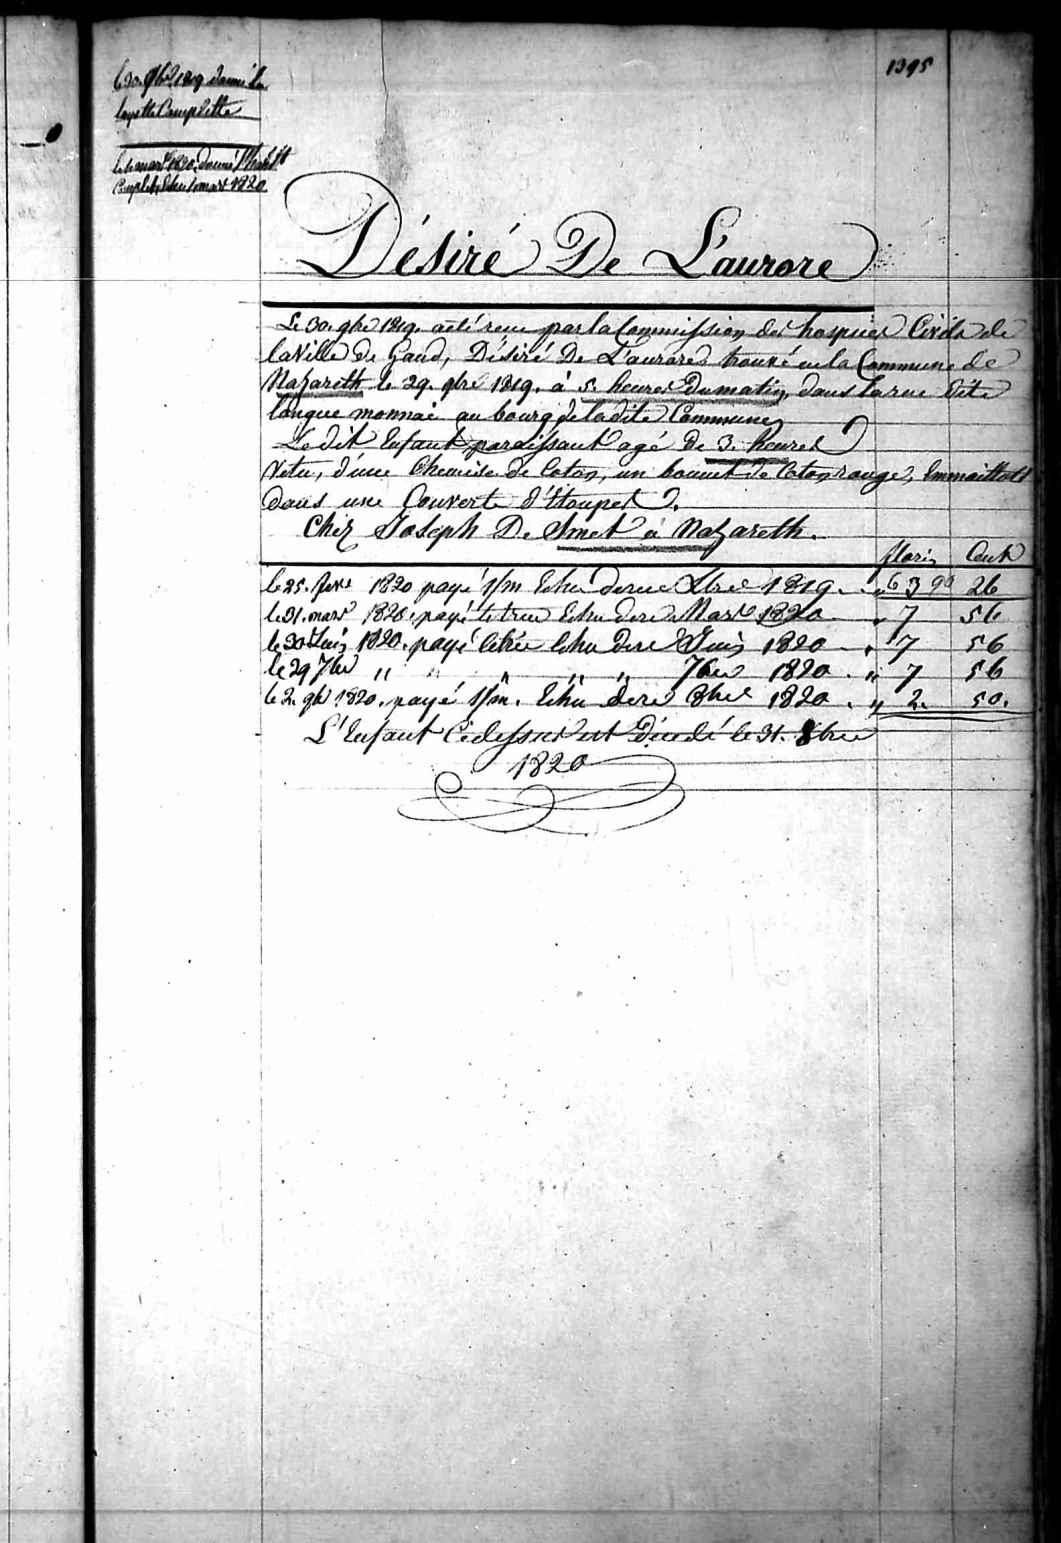 1395
le 30. 9bre 1819 donné la
layette Complette
le mars 1820, donné
Complet, Echu 1 mars 1820
Désiré De L'aurore
Le 30. 9bre 1819. a été recu par la Commission des hospices Civils de
la Ville de Gand, Désiré De L'aurore trouvé en la Commune de
Nazareth le 29. 9bre 1819. à 5. heures Du matin, dans la rue dite
langue monnaie au bourg de la dite Commune
Le dit Enfant paraissant agé De 3. heures
Vetu, d'une Chemise de Coton, un bonnet de Coton rouge, Emmaillotté
dans une Couverte d'Etoupes.
Chez Joseph De Smet à Nazareth.
florin Cent
le 25. 1820 payé 1/m Echu dernier Xbre 1819 . " 6 26
le 31. mars 1820. payé le trim Echu der Mars 1820 " 7 56
le 30 Juin 1820. payé le trim Echu Der Juin 1820 " 7 56
le 29 7bre " " " " " 7bre 1820 . " 7 56
le 2. 9bre 1820. payé 1/m. Echu der 8bre 1820 . " 2. 50.
L'Enfant Cidessus est Décedé le 31. 8bre
1820